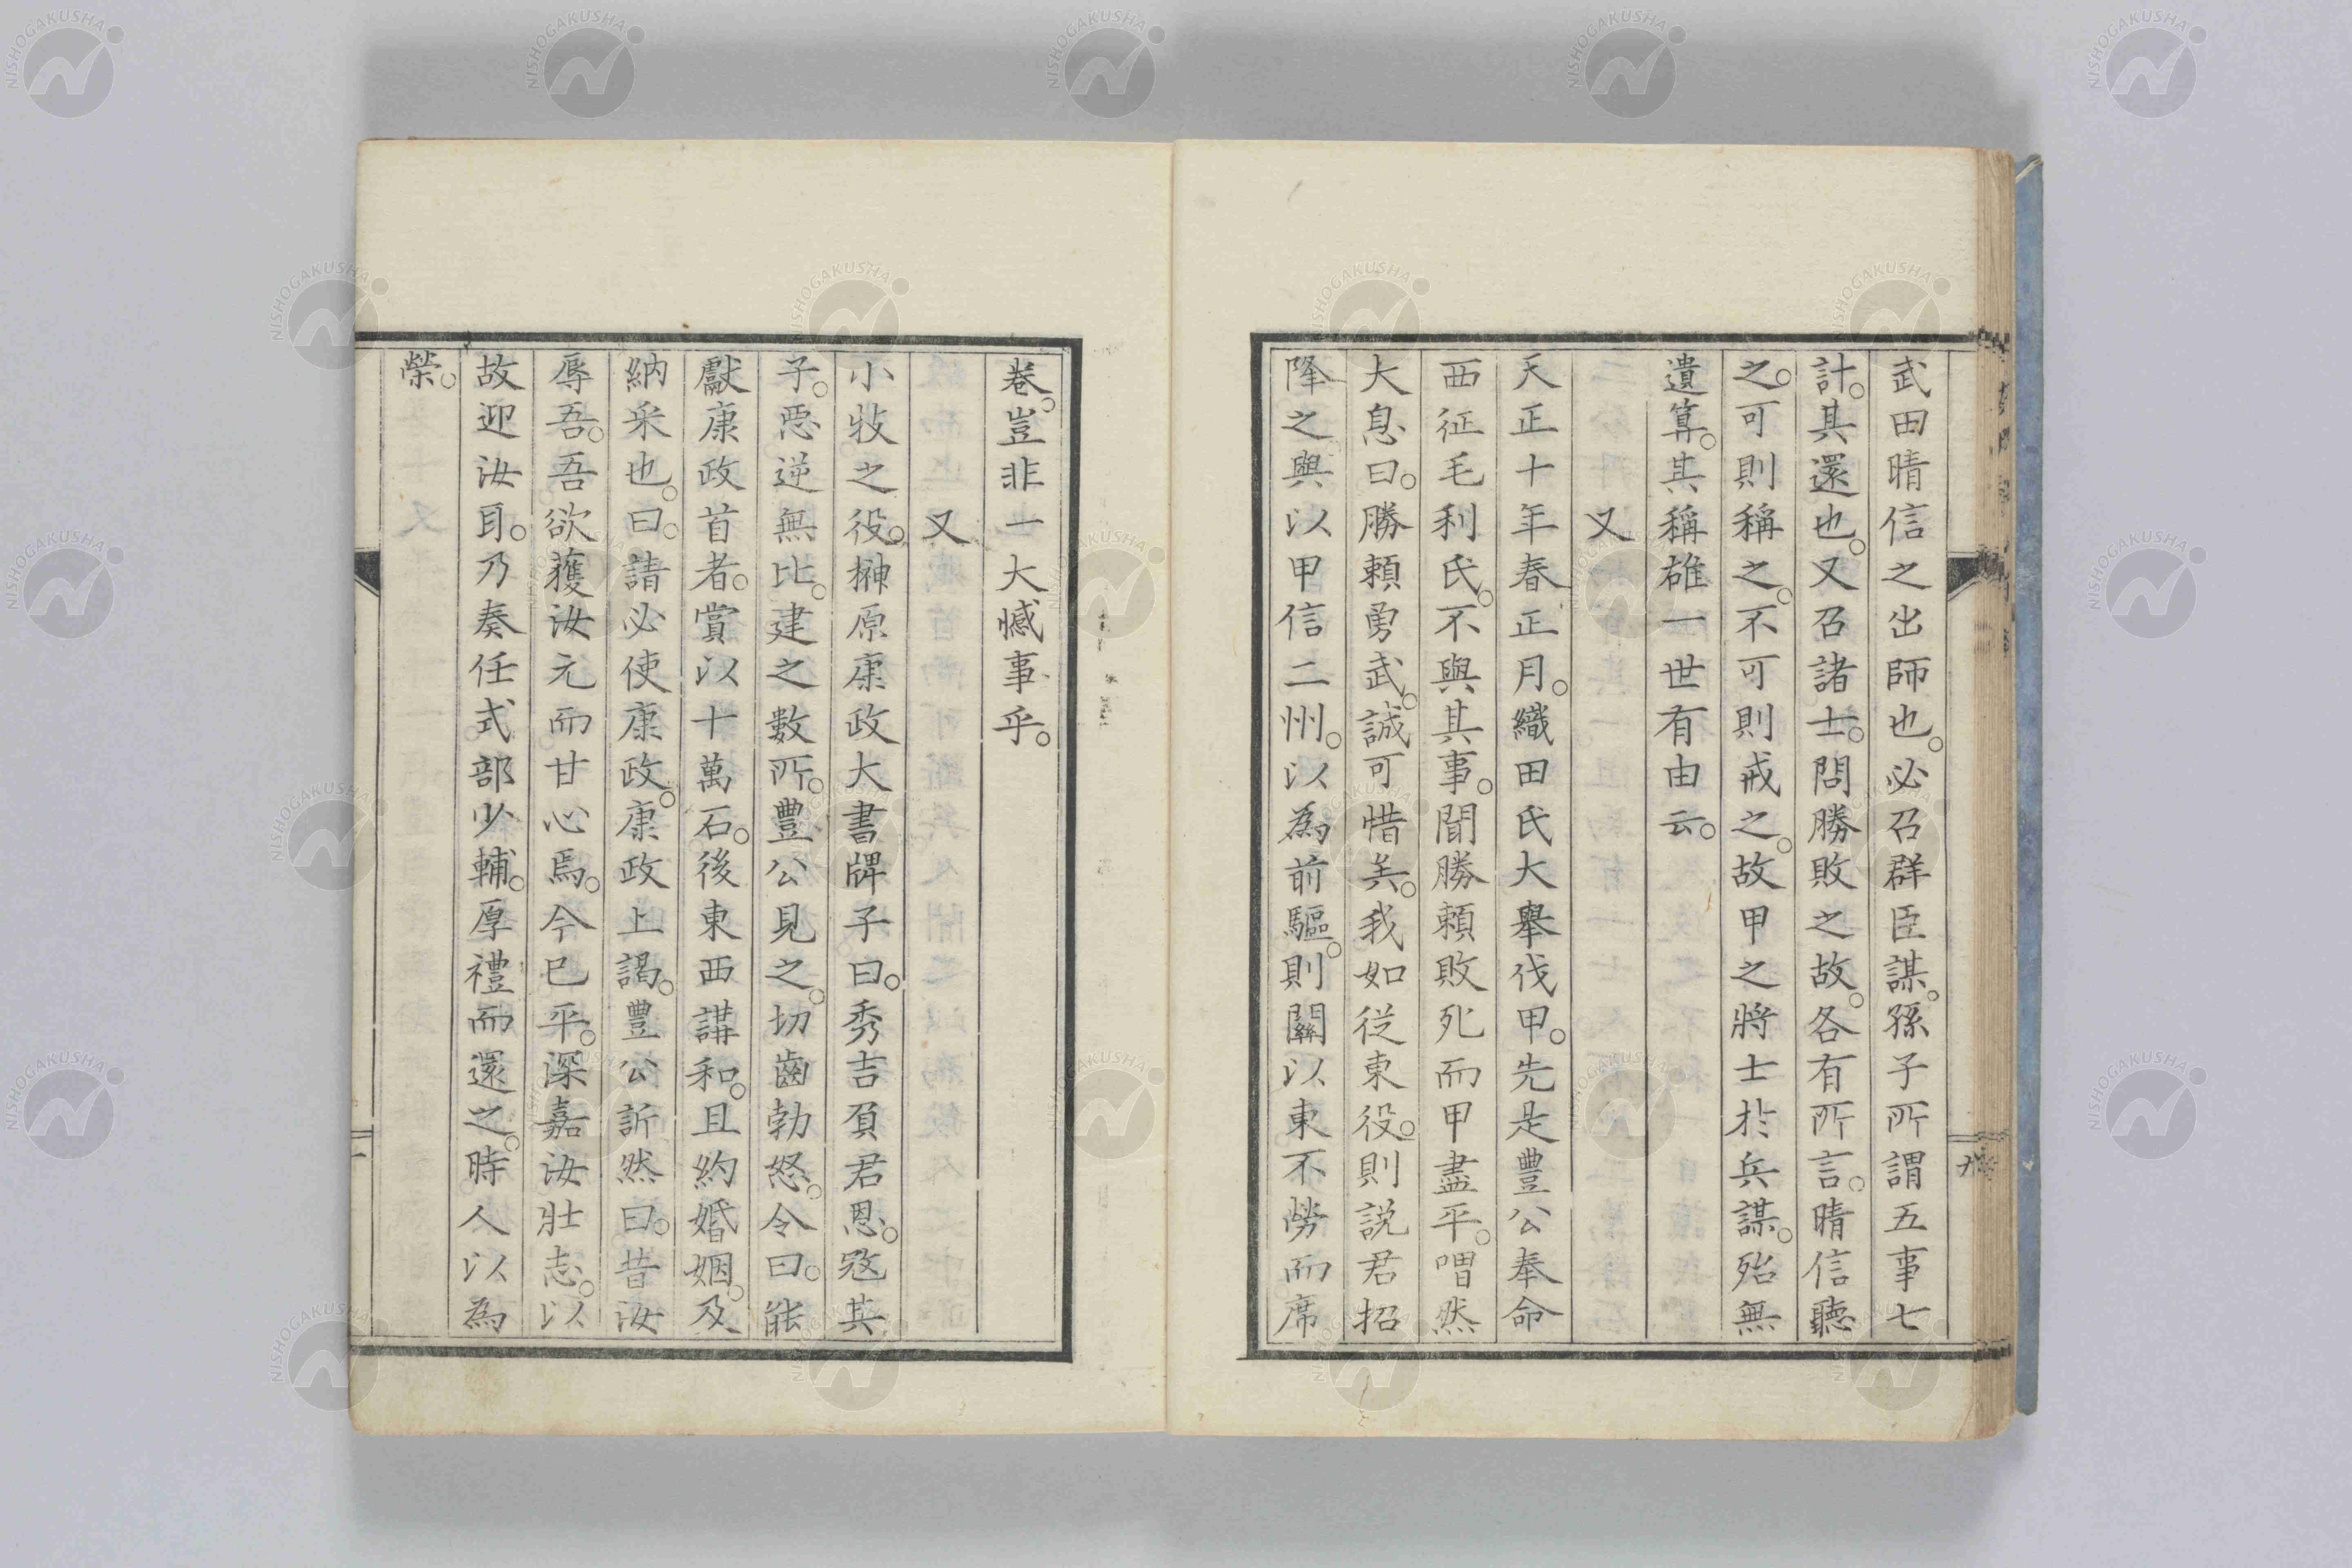 武田晴信之出師也。必召群臣謀。孫子所謂五事七
計。其還也。又召諸士。問勝敗之故。各有所言。晴信聽
之。可則稱之。不可則戒之。故甲之將士於兵謀。殆無
遺算。其稱雄一世有由云。
又
天正十年春正月。織田氏大舉伐甲。先是豐公奉命
西征毛利氏。不與其事。聞勝賴敗死而甲盡平。喟然
大息曰。勝賴勇武。誠可惜矣。我如從東役。則説君招
降之與以甲信二州。以為前驅。則關以東不勞而席
卷。豈非一大憾事乎。
又
小牧之役。榊原康政大書牌子曰。秀吉負君恩。寇其
子。惡逆無比。建之數所。豐公見之。切齒勃怒。令曰。能
獻康政首者。賞以十萬石。後東西講和。且約婚姻。及
納采也。曰。請必使康政。康政上謁。豐公訢然曰。昔汝
辱吾。吾欲獲汝元而甘心焉。今已平。深嘉汝壯志。以
故迎汝耳。乃奏任式部少輔。厚禮而還之。時人以為
榮。
九
NISHOGAKUSHA